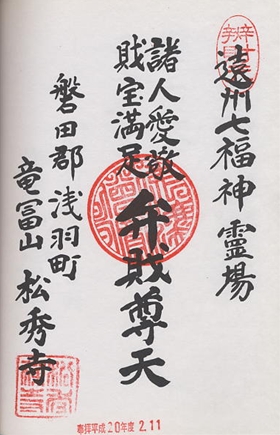 遠州七福神霊場
諸人愛敬
財宝満足
弁財尊天
磐田郡浅羽町
竜冨山 松秀寺
奉拝平成20年度 2.11